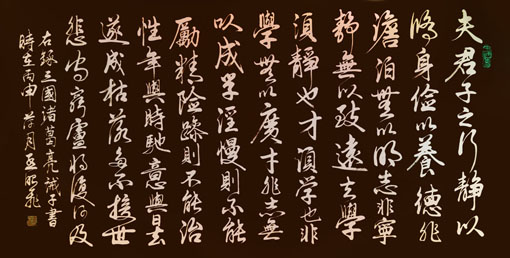 夫君子之行靜以
脩身儉以養德非
澹泊無以明志非寧
靜無以致遠夫學
須靜也才須學也非
學無以廣才非志無
以成學淫慢則不能
勵精險躁則不能治
性年與時馳意與日去
遂成枯落多不接世
悲守窮廬將復何及
右録三國諸葛亮誡子書
時在丙申荷月